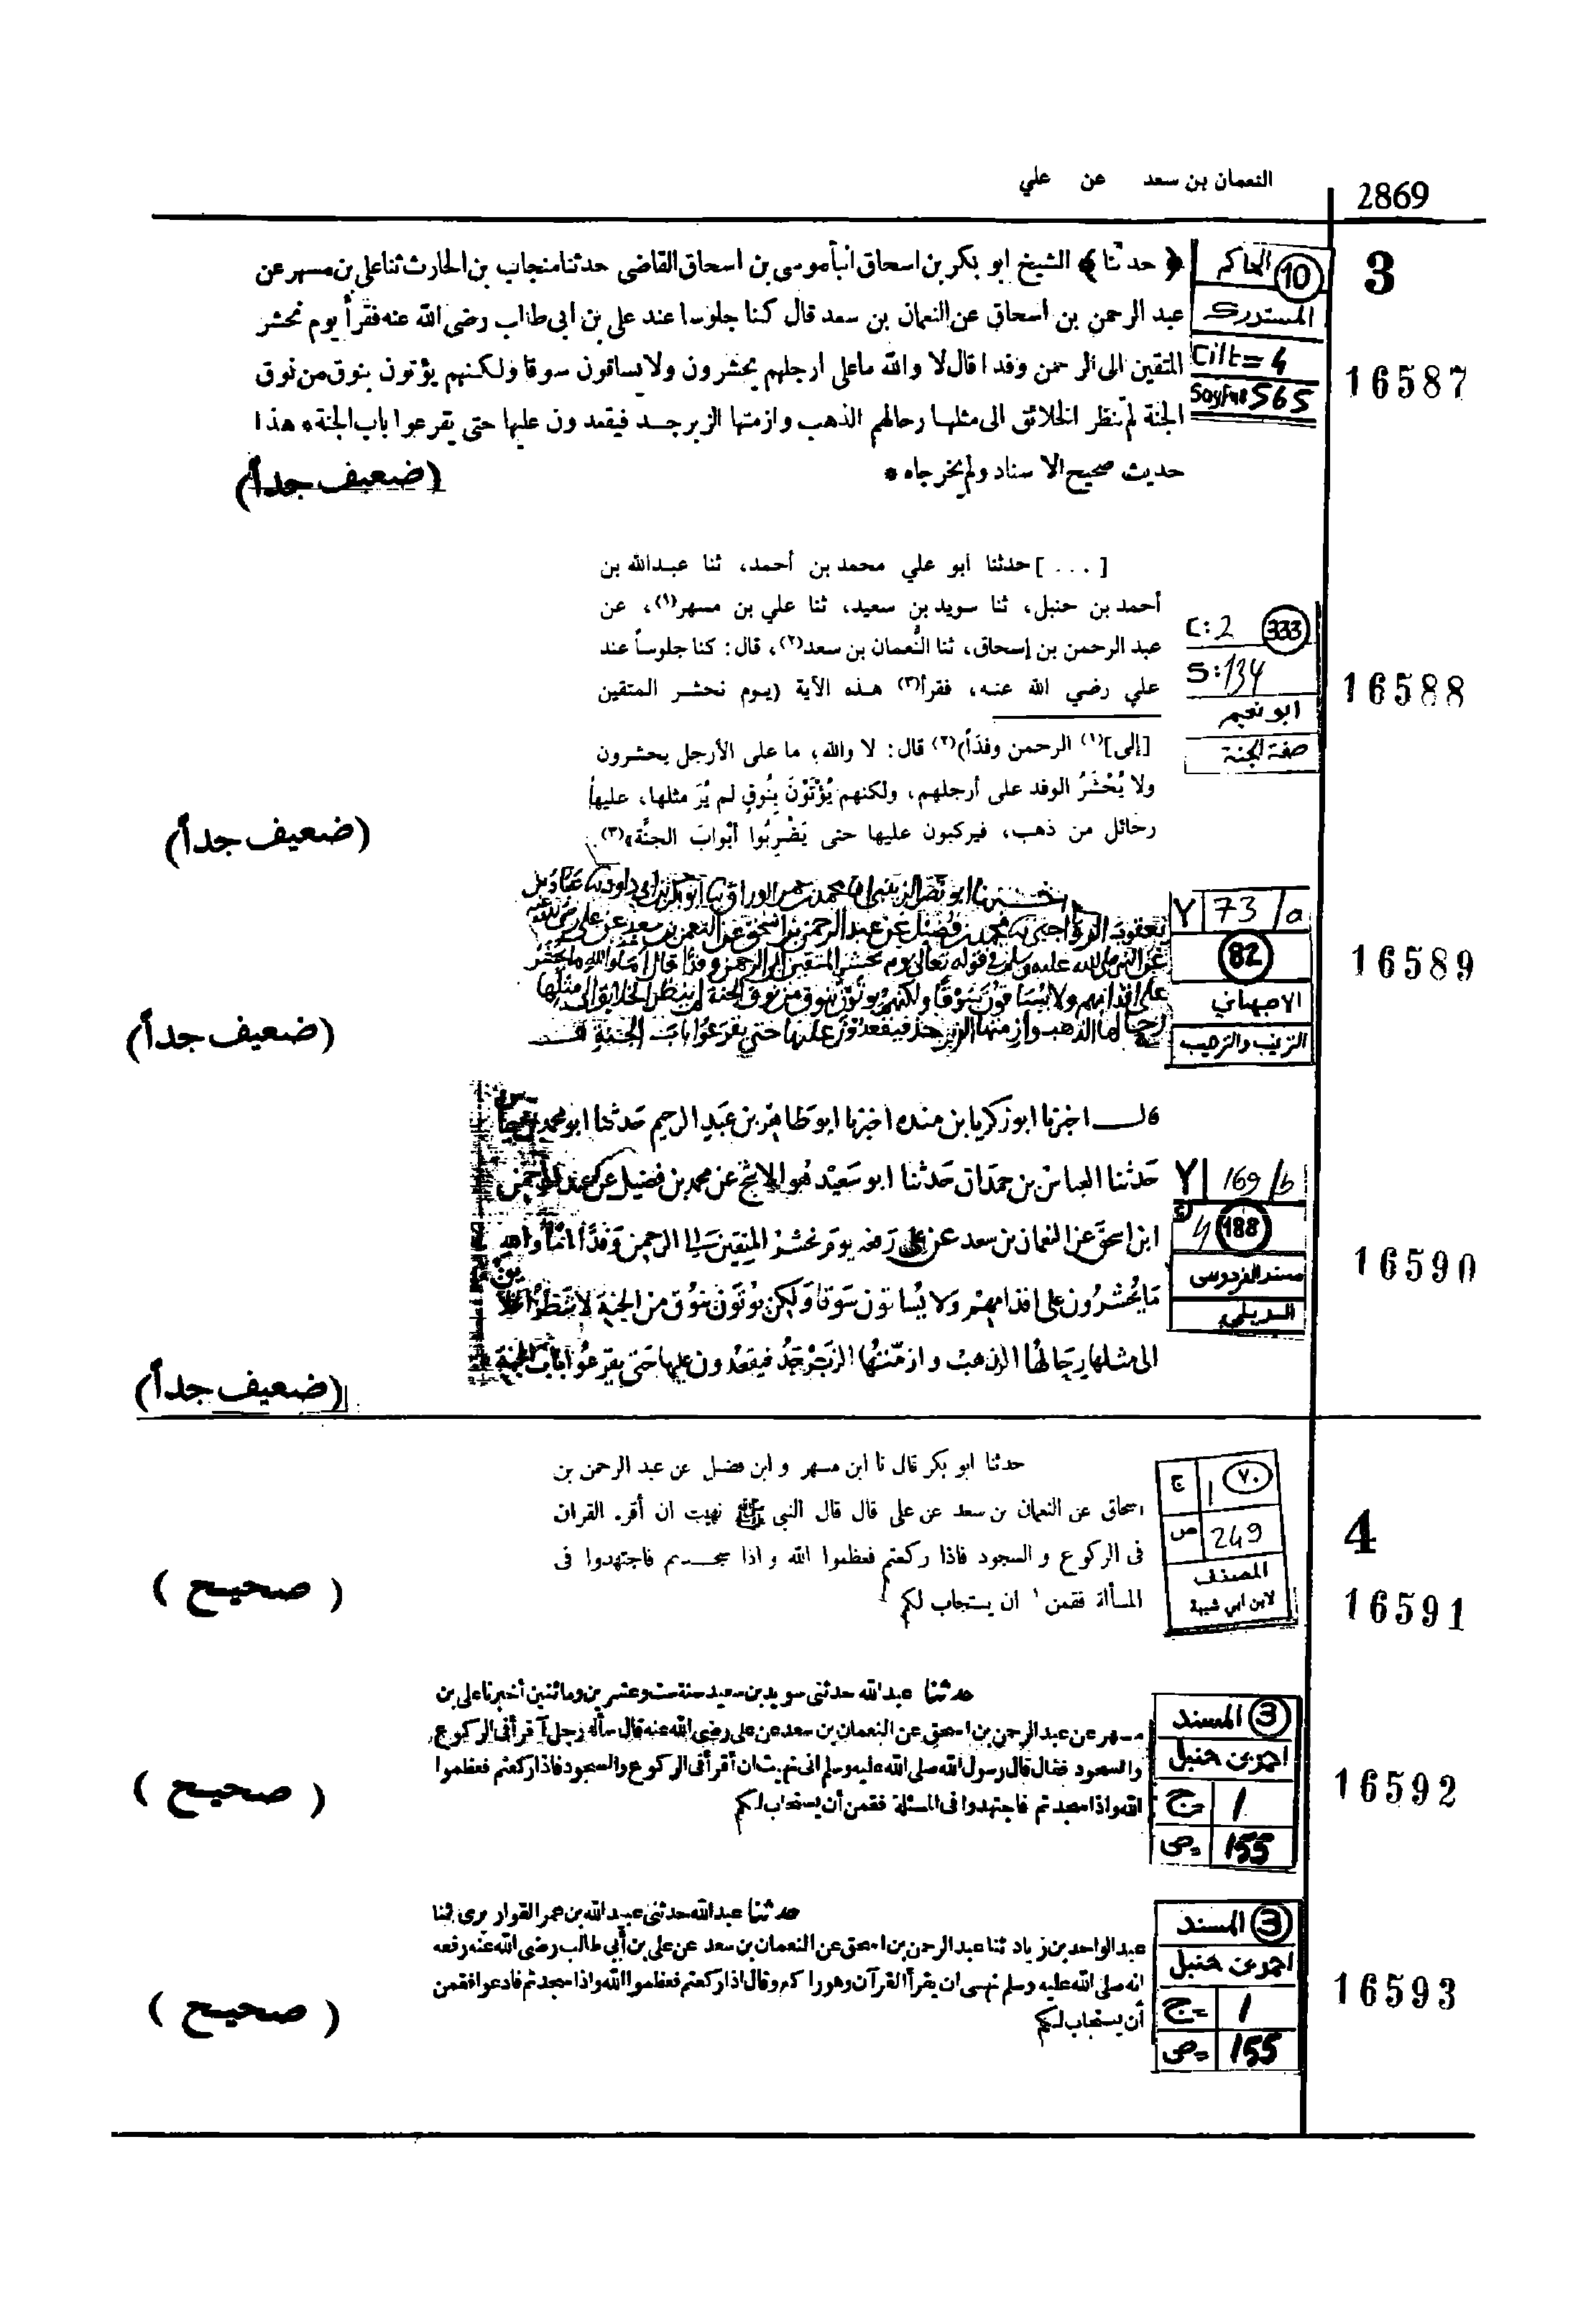 النعمان بن سعد عن علي
2869
3
الحاكم 10
المستدرك
Cilt = 4
Sayfa 565
16587
﴿ حدثنا ﴾ الشيخ ابو بكر بن اسحاق انبأ موسى بن اسحاق القاضى حدثنا منجاب بن الحارث ثنا على بن مسهر عن
عبد الرحمن بن اسحاق عن النعمان بن سعد قال كنا جلوسا عند على بن ابى طالب رضى الله عنه فقرأ يوم نحشر
المتقين الى الرحمن وفدا قال لا والله ما على ارجلهم يحشرون ولا يساقون سوقا ولكنهم يؤتون بنوق من نوق
الجنة لم ينظر الخلائق الى مثلها رحالهم الذهب وازمتها الزبرجد فيقعدون عليها حتى يقرعوا باب الجنة * هذا
حديث صحيح الاسناد ولم يخرجاه *
(ضعيف جداً)
[ . . . ] حدثنا أبو علي محمد بن أحمد، ثنا عبدالله بن
أحمد بن حنبل، ثنا سويد بن سعيد، ثنا علي بن مسهر(١)، عن
عبد الرحمن بن إسحاق، ثنا النُّعمان بن سعد(٢)، قال: كنا جلوساً عند
علي رضي الله عنه، فقرأ(٣) هذه الآية (يوم نحشر المتقين
[إلى](١) الرحمن وفداً)(٢) قال: لا والله، ما على الأرجل يحشرون
ولا يُحْشَرُ الوفد على أرجلهم، ولكنهم يُؤْتَوْنَ بِنُوقٍ لم يُرَ مثلها، عليها
رحائل من ذهب، فيركبون عليها حتى يَضْرِبُوا أبْوابَ الجنَّة»(٣).
C: 2 333
S: 134
ابو نعيم
صفة الجنة
16588
(ضعيف جداً)
Y 73/a
82
الاصبهاني
الترغيب والترهيب
16589
اخبرنا ابو نصر الزينبي محمد بن عمر الوراق ابو بكر بن ابي داود عباد بن
يعقوب الرواجني محمد بن فضيل عن عبد الرحمن بن اسحق عن النعمن بن سعد عن علي رضي الله عنه
عن النبي صلى الله عليه وسلم في قوله تعالى يوم نحشر المتقين الى الرحمن وفدا قال اما والله ما يحشر
على اقدامهم ولا يساقون سوقا ولكنهم يؤتون بنوق من نوق الجنة لم ينظر الخلايق الى مثلها
رحالها الذهب وازمتها الزبرجد فيقعدون عليها حتى يقرعوا باب الجنة
(ضعيف جداً)
Y 169/b
188
مسند الفردوس
الديلمي
16590
قال اخبرنا ابو زكريا بن منده اخبرنا ابو طاهر بن عبد الرحيم حدثنا ابو محمد
حدثنا العباس بن حمدان حدثنا ابو سعيد هو الاشج عن محمد بن فضيل عن عبد الرحمن
ابن اسحق عن النعمان بن سعد عن علي رفعه يوم نحشر المتقين الى الرحمن وفدا اما والله
ما يحشرون على اقدامهم ولا يساقون سوقا ولكن يوتون بنوق من الجنة لا ينظر
الى مثلها رحالها الذهب وازمتها الزبرجد فيقعدون عليها حتى يقرعوا باب الجنة
(ضعيف جداً)
4
ج ١ ٧٠
ص 249
المصنف
لابن ابي شيبة
16591
حدثنا ابو بكر قال نا ابن مسهر و ابن فضيل عن عبد الرحمن بن
اسحاق عن النعمان بن سعد عن على قال قال النبى ﷺ نهيت ان أقرء القران
فى الركوع و السجود فاذا ركعتم فعظموا الله و اذا سجدتم فاجتهدوا فى
المسألة فقمن ١ ان يستجاب لكم
( صحيح )
حدثنا عبد الله حدثنى سويد بن سعيد سنة ست وعشرين ومائتين أخبرنا على بن
مسهر عن عبد الرحمن بن اسحق عن النعمان بن سعد عن على رضى الله عنه قال سأله رجل آقرأ فى الركوع
والسجود فقال قال رسول الله صلى الله عليه وسلم انى نهيت ان أقرأ فى الركوع والسجود فاذا ركعتم فعظموا
الله واذا سجدتم فاجتهدوا فى المسئلة فقمن أن يستجاب لكم
3 المسند
احمد بن حنبل
ج 1
ص 155
16592
( صحيح )
حدثنا عبد الله حدثنى عبيد الله بن عمر القواريرى ثنا
عبد الواحد بن زياد ثنا عبد الرحمن بن اسحق عن النعمان بن سعد عن على بن أبي طالب رضى الله عنه رفعه
انه صلى الله عليه وسلم نهى ان يقرأ القرآن وهو راكع وقال اذا ركعتم فعظموا الله واذا سجدتم فادعوا فقمن
أن يستجاب لكم
3 المسند
احمد بن حنبل
ج 1
ص 155
16593
( صحيح )